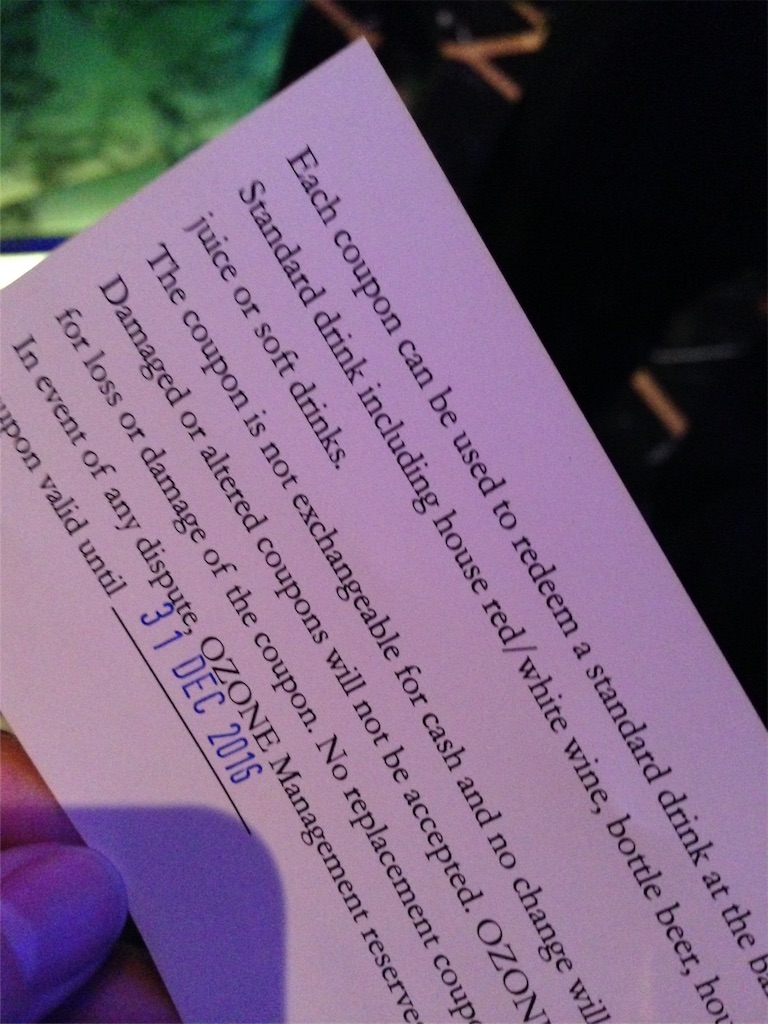 Each coupon can be used to redeem a standard drink at the
Standard drink including house red/white wine, bottle beer,
juice or soft drinks.
The coupon is not exchangeable for cash and no change will
Damaged or altered coupons will not be accepted.
for loss or damage of the coupon. No replacement
In event of any dispute, OZONE Management
valid until 31 DEC 2016